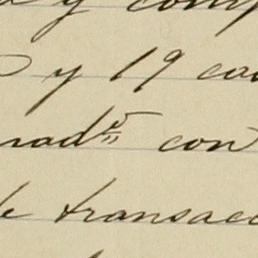 y comp
y 19 cu
rads con
de transacc